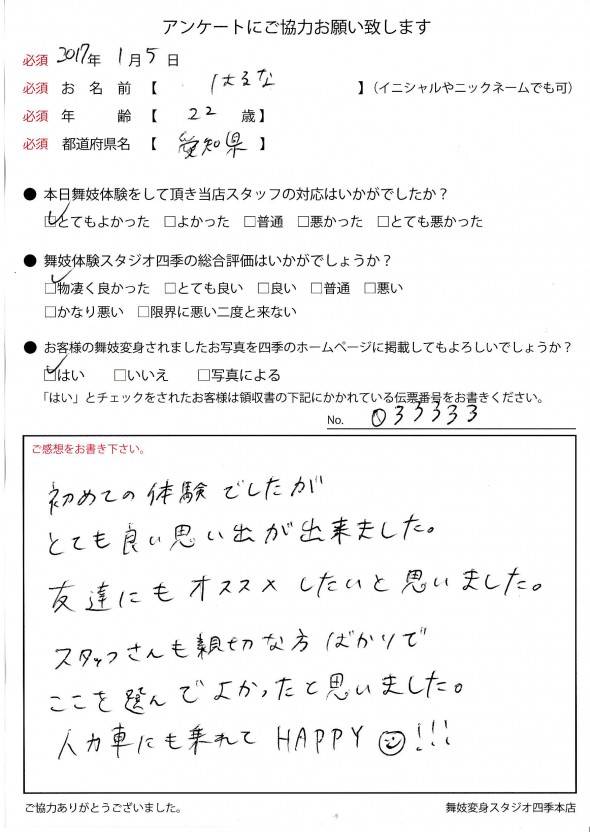 アンケートにご協力お願い致します
必須 2017年 1月5日
必須 お名前 【 はるな 】(イニシャルやニックネームでも可)
必須 年齢 【 22 歳】
必須 都道府県名 【 愛知県 】
● 本日舞妓体験をして頂き当店スタッフの対応はいかがでしたか?
☑とてもよかった □よかった □普通 □悪かった □とても悪かった
● 舞妓体験スタジオ四季の総合評価はいかがでしょうか?
☑物凄く良かった □とても良い □良い □普通 □悪い
□かなり悪い □限界に悪い二度と来ない
● お客様の舞妓変身されましたお写真を四季のホームページに掲載してもよろしいでしょうか?
☑はい □いいえ □写真による
「はい」とチェックをされたお客様は領収書の下記にかかれている伝票番号をお書きください。
No. 033333
ご感想をお書き下さい。
初めての体験でしたが
とても良い思い出が出来ました。
友達にもオススメしたいと思いました。
スタッフさんも親切な方ばかりで
ここを選んでよかったと思いました。
人力車にも乗れて HAPPY ☺!!!
ご協力ありがとうございました。
舞妓変身スタジオ四季本店